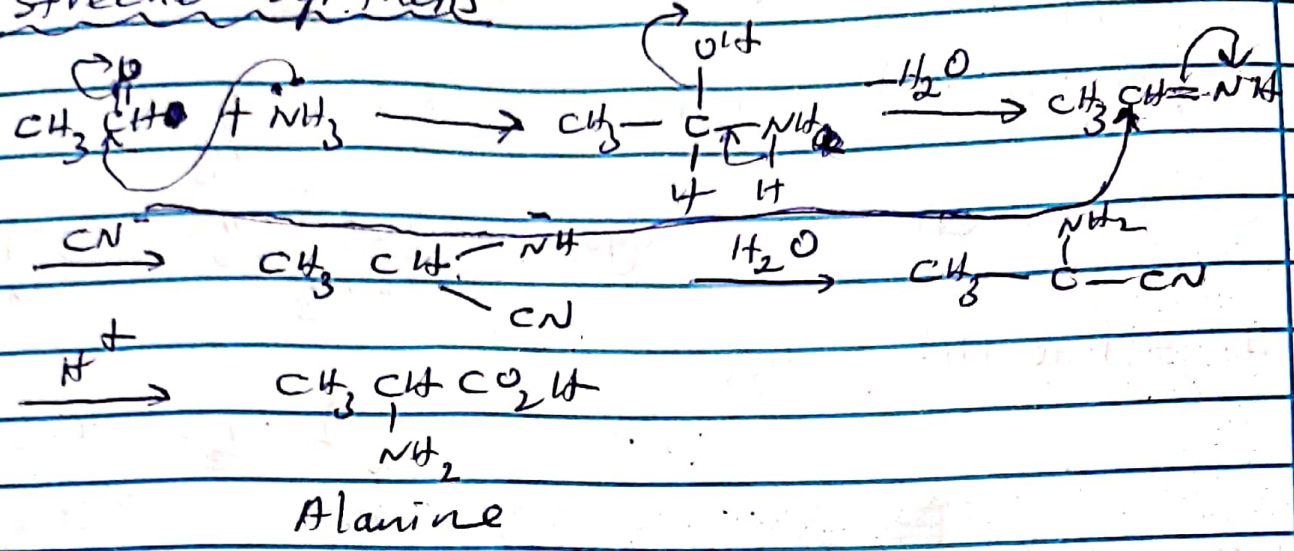 CH3CHO + NH3 → CH3—C(OH)(H)—NH(H) —H2O→ CH3CH=NH
CN⁻ → CH3 CH(N̄H)(CN) H2O → CH3—C(NH2)—CN
H+ → CH3 CH CO2H
NH2
Alanine